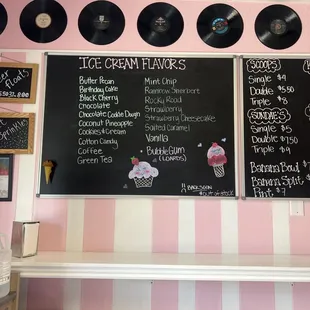 ICE CREAM FLAVORS
Butter Pecan
Birthday Cake
Black Cherry
Chocolate
Chocolate Cookie Dough
Coconut Pineapple
Cookies & Cream
Cotton Candy
Coffee
Green Tea
Mint Chip
Rainbow Sherbert
Rocky Road
Strawberry
Strawberry Cheesecake
Salted Caramel
Vanilla
Bubble Gum
SCOOPS
Single $4
Double
Triple $8
SUNDAES
Single $5
Double $7.50
Triple $9
Banana Bowl
Banana Split
Pint $7
Floats
Sprinkles